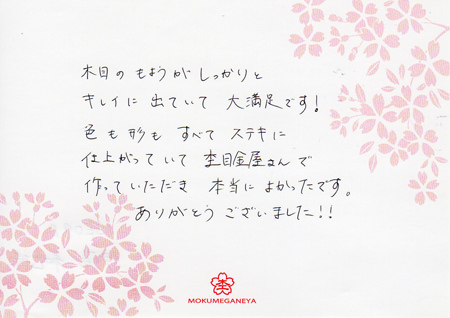 木目の もようが しっかりと
キレイに 出ていて 大満足です!
色も 形も すべて ステキに
仕上がっていて 杢目金屋さんで
作っていただき 本当に よかったです。
ありがとう ございました!!
杢
MOKUMEGANEYA